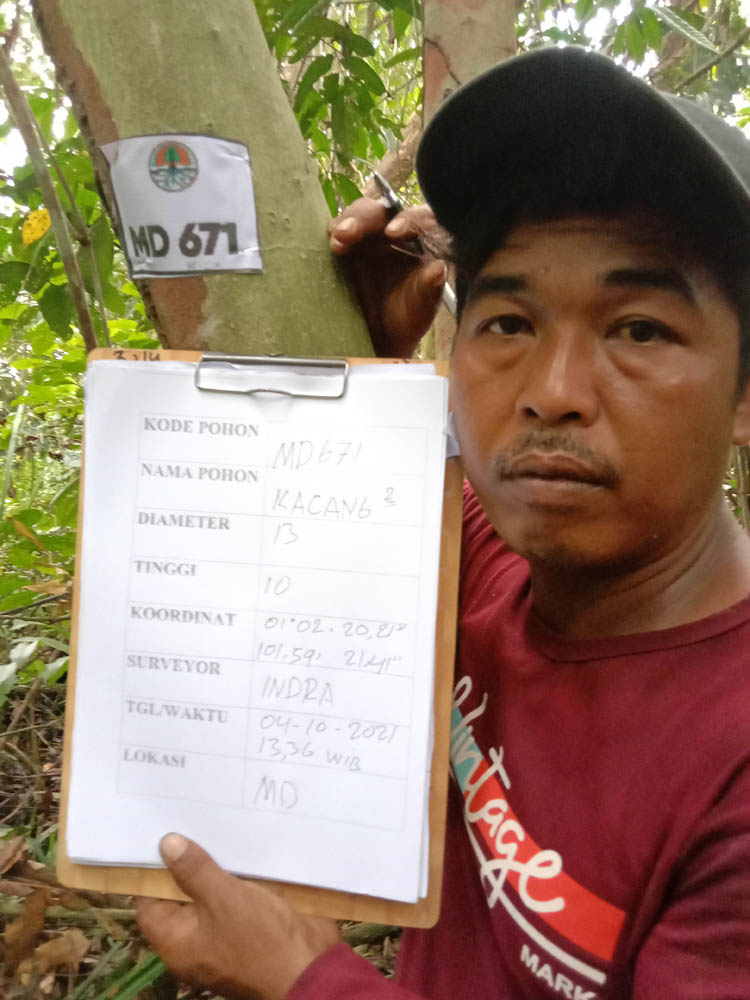 MD 671
KODE POHON MD671
NAMA POHON KACANG 2
DIAMETER 13
TINGGI 10
KOORDINAT 01°02. 20,21"
101.59, 21.41"
SURVEYOR INDRA
TGL/WAKTU 04-10-2021
13,36 WIB
LOKASI MD
Vintage
MARK